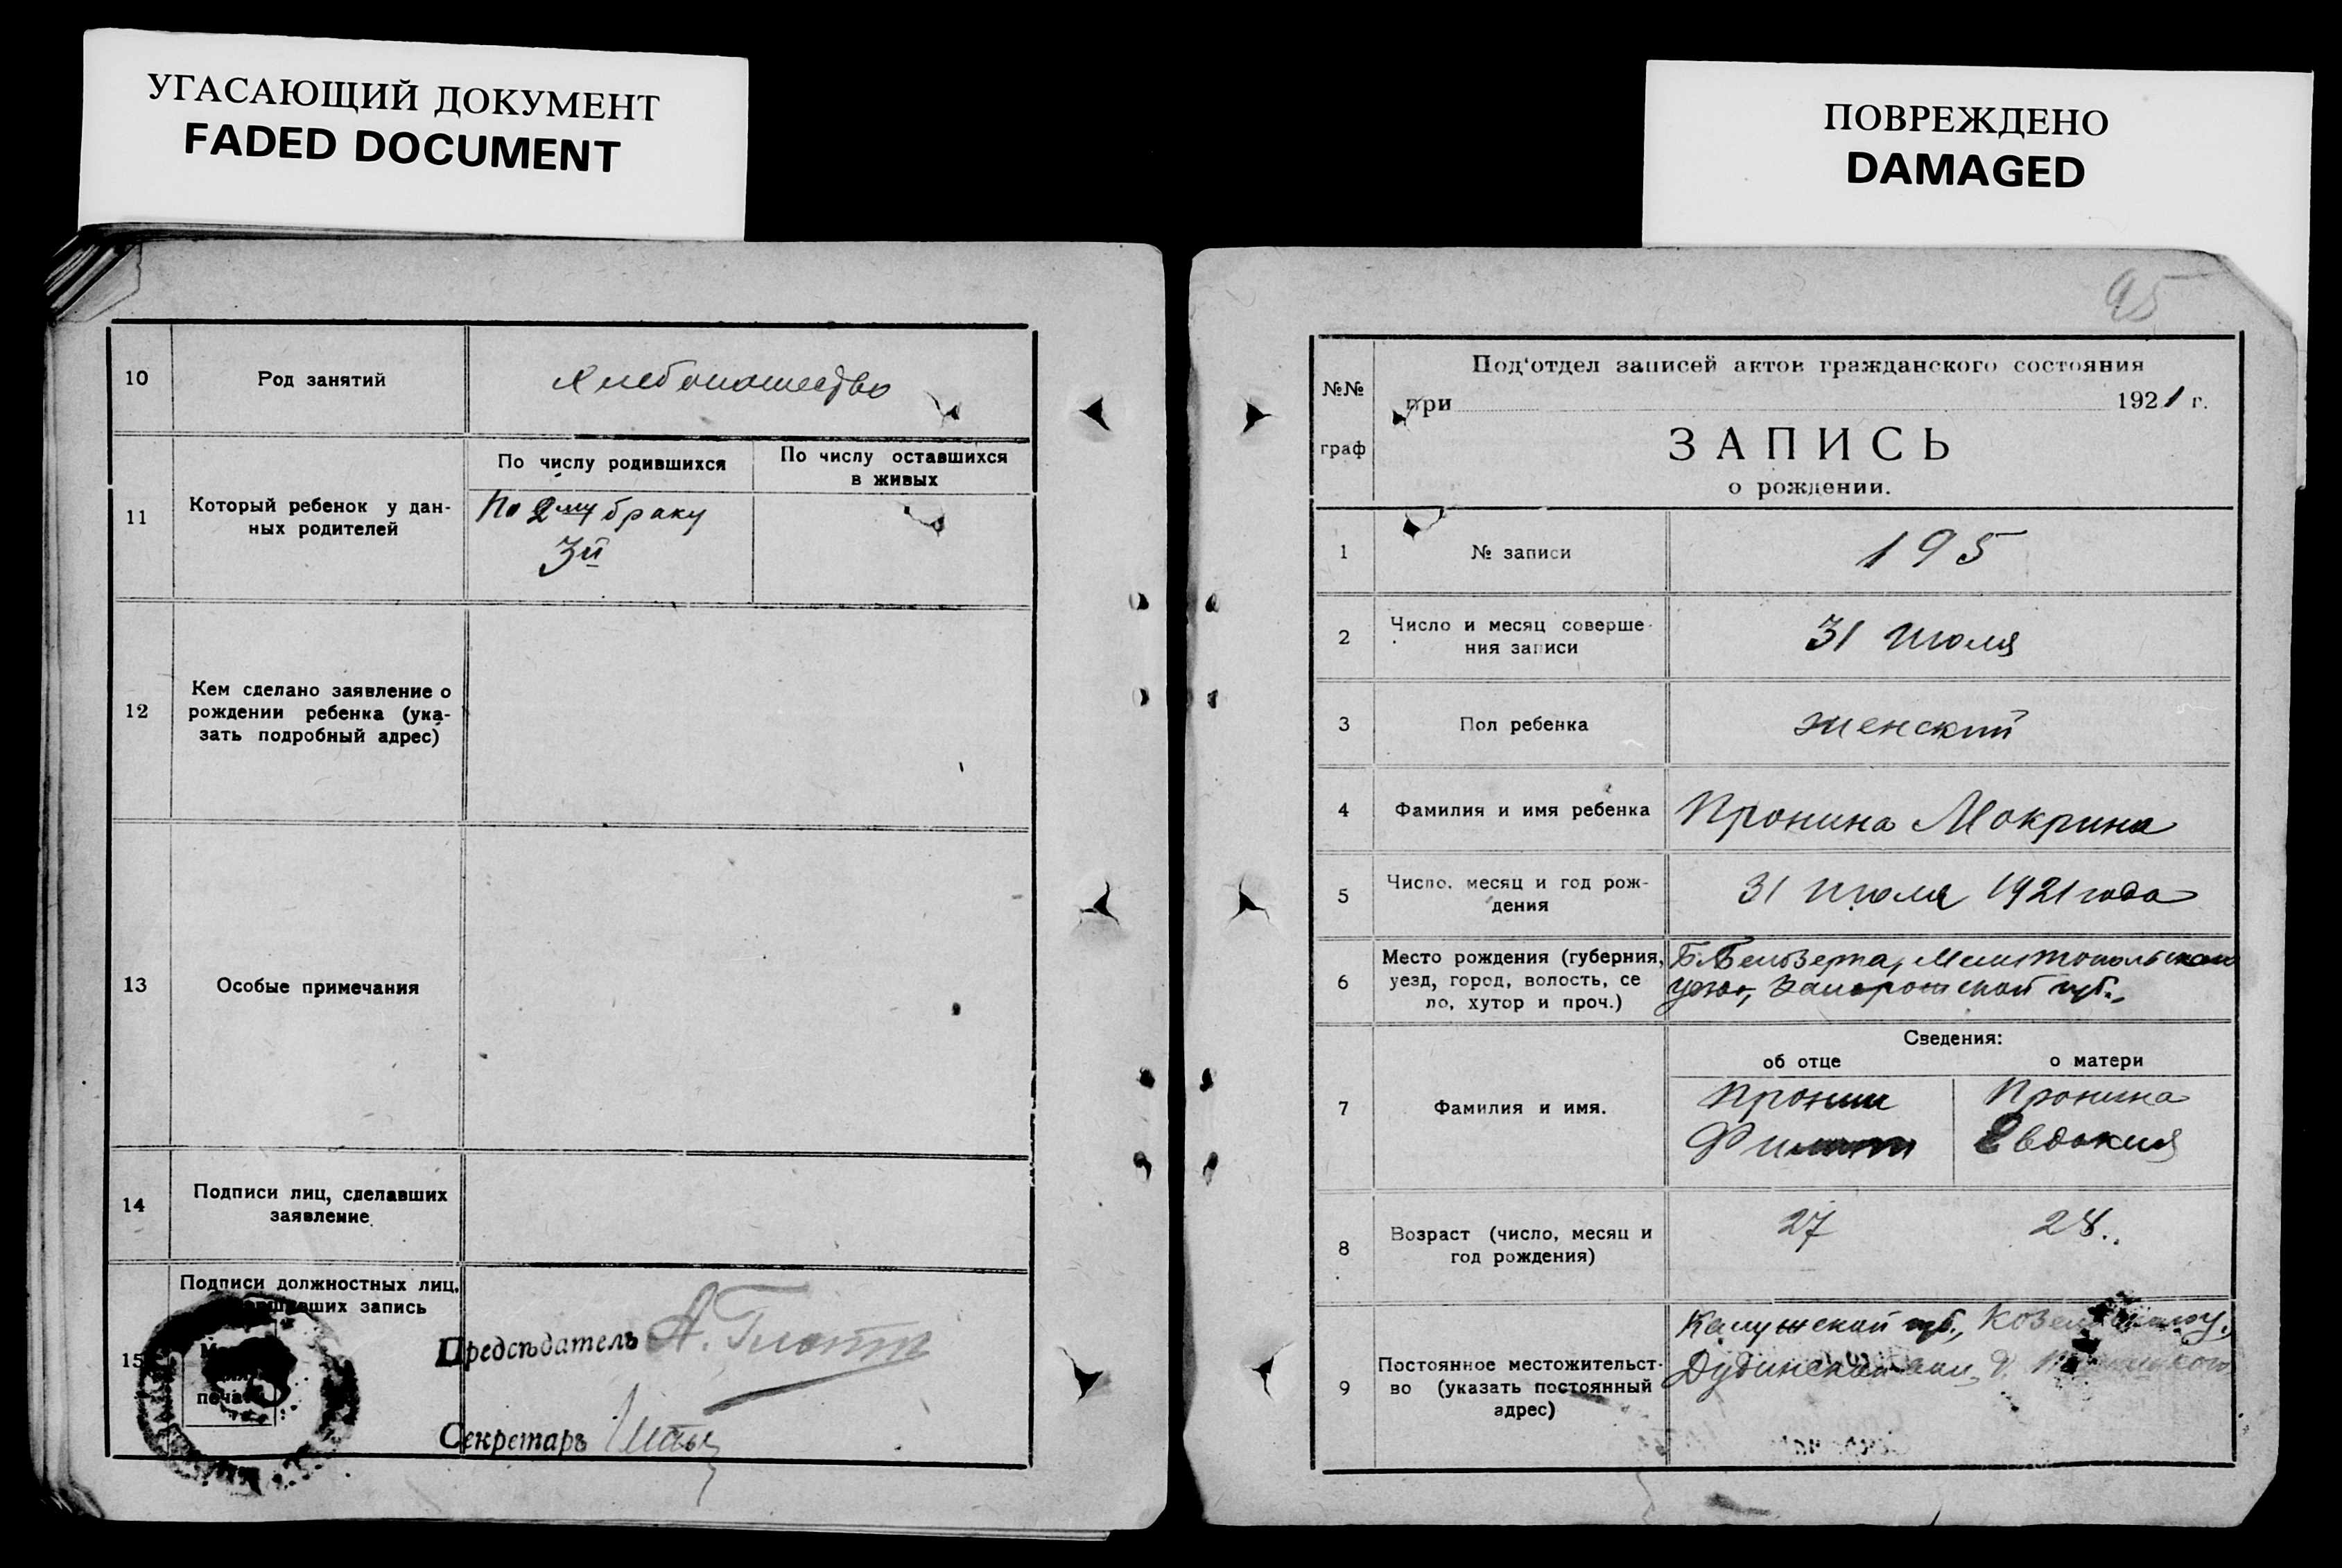 УГАСАЮЩИЙ ДОКУМЕНТ
FADED DOCUMENT
10
Род занятий
Хлебопашество
11
Который ребенок у дан-
ных родителей
По числу родившихся
По числу оставшихся
в живых
По 2му браку
3й
12
Кем сделано заявление о
рождении ребенка (ука-
зать подробный адрес)
13
Особые примечания
14
Подписи лиц, сделавших
заявление
15
Подписи должностных лиц,
запись
печати
Председатель А.
Секретарь
ПОВРЕЖДЕНО
DAMAGED
95
№№
граф
Под'отдел записей актов гражданского состояния
при 1921 г.
ЗАПИСЬ
о рождении.
1
№ записи
195
2
Число и месяц соверше-
ния записи
31 июля
3
Пол ребенка
женский
4
Фамилия и имя ребенка
Пронина Мокрина
5
Число, месяц и год рож-
дения
31 июля 1921 года
6
Место рождения (губерния,
уезд, город, волость, се
ло, хутор и проч.)
Б. Белозерка, Мелитопольского
уезда, Запорожской губ.,
Сведения:
об отце
о матери
7
Фамилия и имя.
Пронин
Филипп
Пронина
Евдокия
8
Возраст (число, месяц и
год рождения)
27
28
9
Постоянное местожительст-
во (указать постоянный
адрес)
Калужской губ., у.,
Дудинской д.